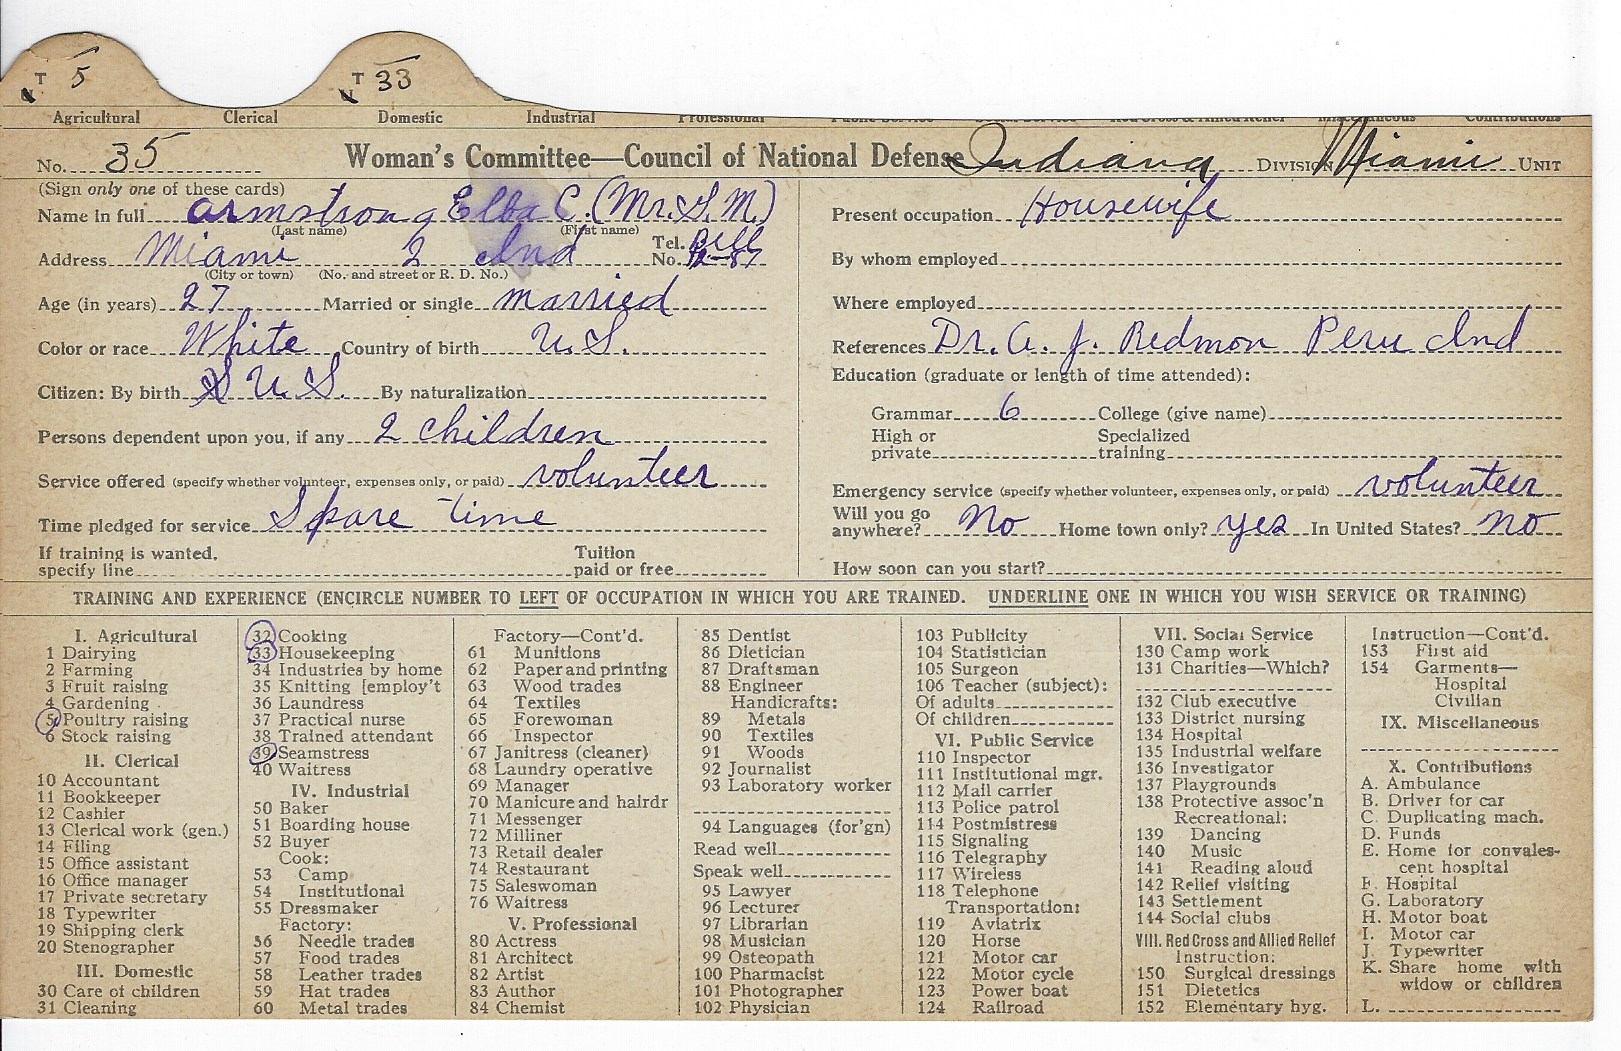 T 5 T 33
Agricultural Clerical Domestic Industrial Professional
No. 35 Woman's Committee—Council of National Defense Indiana Division Miami Unit
(Sign only one of these cards)
Name in full Armstrong Elba C. (Mr. S. M.)
(Last name) (First name)
Address Miami 2 Ind Tel. No. Bell 12-87
(City or town) (No. and street or R. D. No.)
Age (in years) 27 Married or single married
Color or race White Country of birth U.S.
Citizen: By birth U.S. By naturalization
Persons dependent upon you, if any 2 children
Service offered (specify whether volunteer, expenses only, or paid) volunteer
Time pledged for service Spare time
If training is wanted, specify line Tuition paid or free
Present occupation Housewife
By whom employed
Where employed
References Dr. A. J. Redmon Peru Ind
Education (graduate or length of time attended):
Grammar 6 College (give name)
High or private Specialized training
Emergency service (specify whether volunteer, expenses only, or paid) volunteer
Will you go anywhere? No Home town only? yes In United States? no
How soon can you start?
TRAINING AND EXPERIENCE (ENCIRCLE NUMBER TO LEFT OF OCCUPATION IN WHICH YOU ARE TRAINED. UNDERLINE ONE IN WHICH YOU WISH SERVICE OR TRAINING)
I. Agricultural
1 Dairying
2 Farming
3 Fruit raising
4 Gardening
5 Poultry raising
6 Stock raising
II. Clerical
10 Accountant
11 Bookkeeper
12 Cashier
13 Clerical work (gen.)
14 Filing
15 Office assistant
16 Office manager
17 Private secretary
18 Typewriter
19 Shipping clerk
20 Stenographer
III. Domestic
30 Care of children
31 Cleaning
32 Cooking
33 Housekeeping
34 Industries by home
35 Knitting [employ't
36 Laundress
37 Practical nurse
38 Trained attendant
39 Seamstress
40 Waitress
IV. Industrial
50 Baker
51 Boarding house
52 Buyer
Cook:
53 Camp
54 Institutional
55 Dressmaker
Factory:
56 Needle trades
57 Food trades
58 Leather trades
59 Hat trades
60 Metal trades
Factory—Cont'd.
61 Munitions
62 Paper and printing
63 Wood trades
64 Textiles
65 Forewoman
66 Inspector
67 Janitress (cleaner)
68 Laundry operative
69 Manager
70 Manicure and hairdr
71 Messenger
72 Milliner
73 Retail dealer
74 Restaurant
75 Saleswoman
76 Waitress
V. Professional
80 Actress
81 Architect
82 Artist
83 Author
84 Chemist
85 Dentist
86 Dietician
87 Draftsman
88 Engineer
Handicrafts:
89 Metals
90 Textiles
91 Woods
92 Journalist
93 Laboratory worker
94 Languages (for'gn)
Read well
Speak well
95 Lawyer
96 Lecturer
97 Librarian
98 Musician
99 Osteopath
100 Pharmacist
101 Photographer
102 Physician
103 Publicity
104 Statistician
105 Surgeon
106 Teacher (subject):
Of adults
Of children
VI. Public Service
110 Inspector
111 Institutional mgr.
112 Mail carrier
113 Police patrol
114 Postmistress
115 Signaling
116 Telegraphy
117 Wireless
118 Telephone
Transportation:
119 Aviatrix
120 Horse
121 Motor car
122 Motor cycle
123 Power boat
124 Railroad
VII. Social Service
130 Camp work
131 Charities—Which?
132 Club executive
133 District nursing
134 Hospital
135 Industrial welfare
136 Investigator
137 Playgrounds
138 Protective assoc'n
Recreational:
139 Dancing
140 Music
141 Reading aloud
142 Relief visiting
143 Settlement
144 Social clubs
VIII. Red Cross and Allied Relief
Instruction:
150 Surgical dressings
151 Dietetics
152 Elementary hyg.
Instruction—Cont'd.
153 First aid
154 Garments—
Hospital
Civilian
IX. Miscellaneous
X. Contributions
A. Ambulance
B. Driver for car
C. Duplicating mach.
D. Funds
E. Home for convales-
cent hospital
F. Hospital
G. Laboratory
H. Motor boat
I. Motor car
J. Typewriter
K. Share home with
widow or children
L.